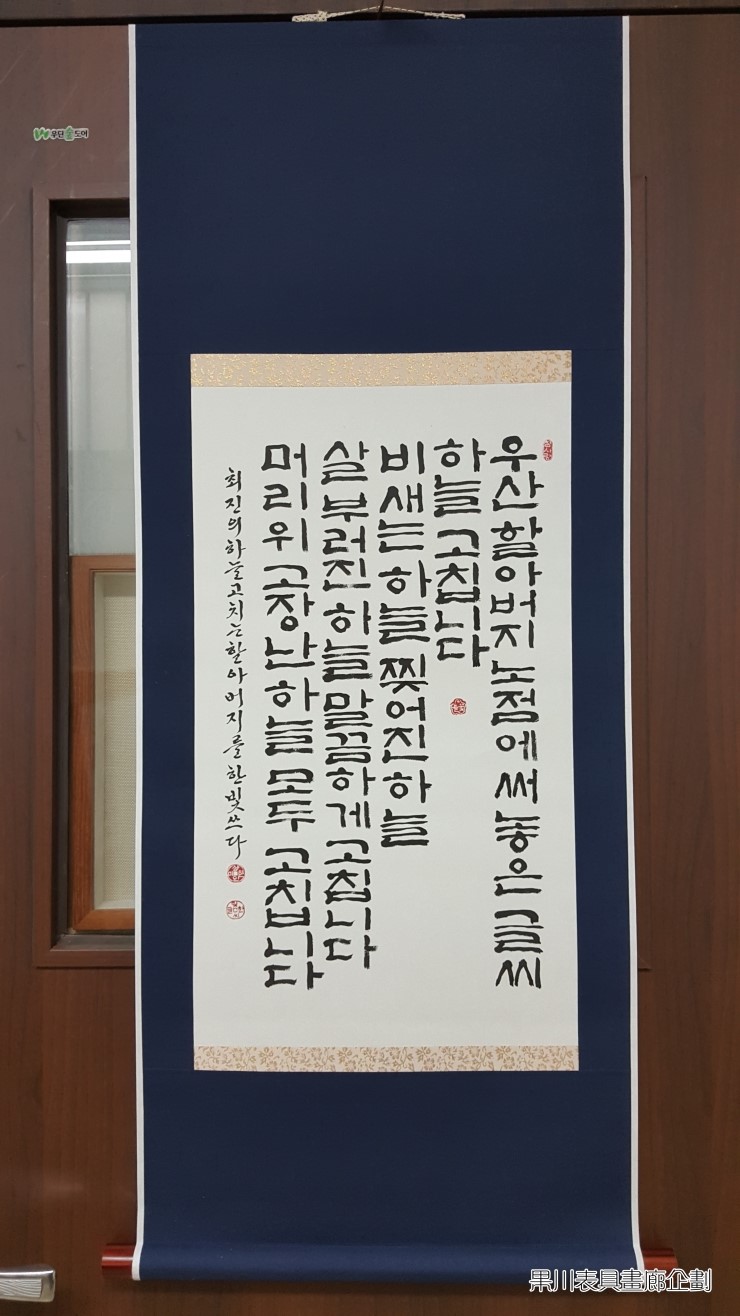 우산 할아버지 노점에 써 놓은 글씨
하늘 고칩니다
비새는 하늘 찢어진 하늘
살 부러진 하늘 말끔하게 고칩니다
머리위 고장난 하늘 모두 고칩니다
최진의 하늘 고치는 할아버지를 한빛 쓰다
우딘숲도어
果川表具畫廊企劃